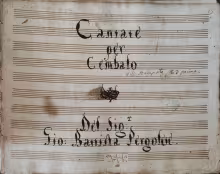 Cantate
per
Cembalo
Del Sig.r
Gio: Batista Pergolesi